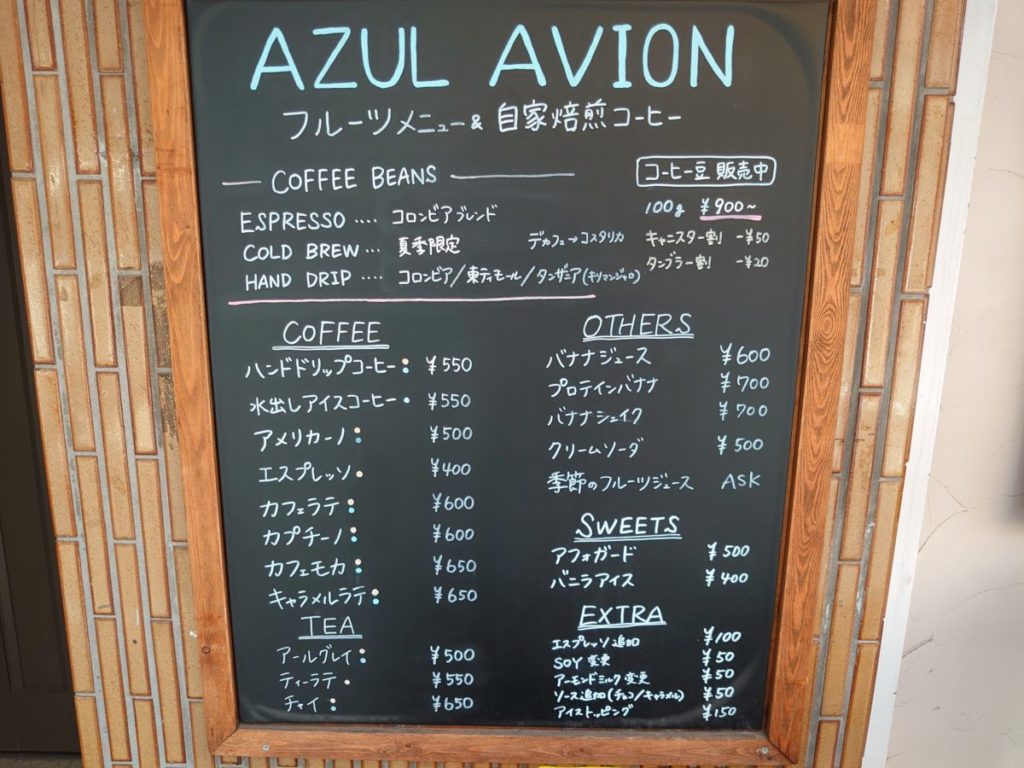 AZUL AVION
フルーツメニュー & 自家焙煎コーヒー
COFFEE BEANS
ESPRESSO .... コロンビアブレンド
COLD BREW ... 夏季限定 デカフェ→コスタリカ
HAND DRIP .... コロンビア/東ティモール/タンザニア(キリマンジャロ)
コーヒー豆 販売中
100g ¥900~
キャニスター割 -¥50
タンブラー割 -¥20
COFFEE
ハンドドリップコーヒー ¥550
水出しアイスコーヒー ¥550
アメリカーノ ¥500
エスプレッソ ¥400
カフェラテ ¥600
カプチーノ ¥600
カフェモカ ¥650
キャラメルラテ ¥650
TEA
アールグレイ ¥500
ティーラテ ¥550
チャイ ¥650
OTHERS
バナナジュース ¥600
プロテインバナナ ¥700
バナナシェイク ¥700
クリームソーダ ¥500
季節のフルーツジュース ASK
SWEETS
アフォガード ¥500
バニラアイス ¥400
EXTRA
エスプレッソ追加 ¥100
SOY 変更 ¥50
アーモンドミルク変更 ¥50
ソース追加(チョコ/キャラメル) ¥50
アイストッピング ¥150